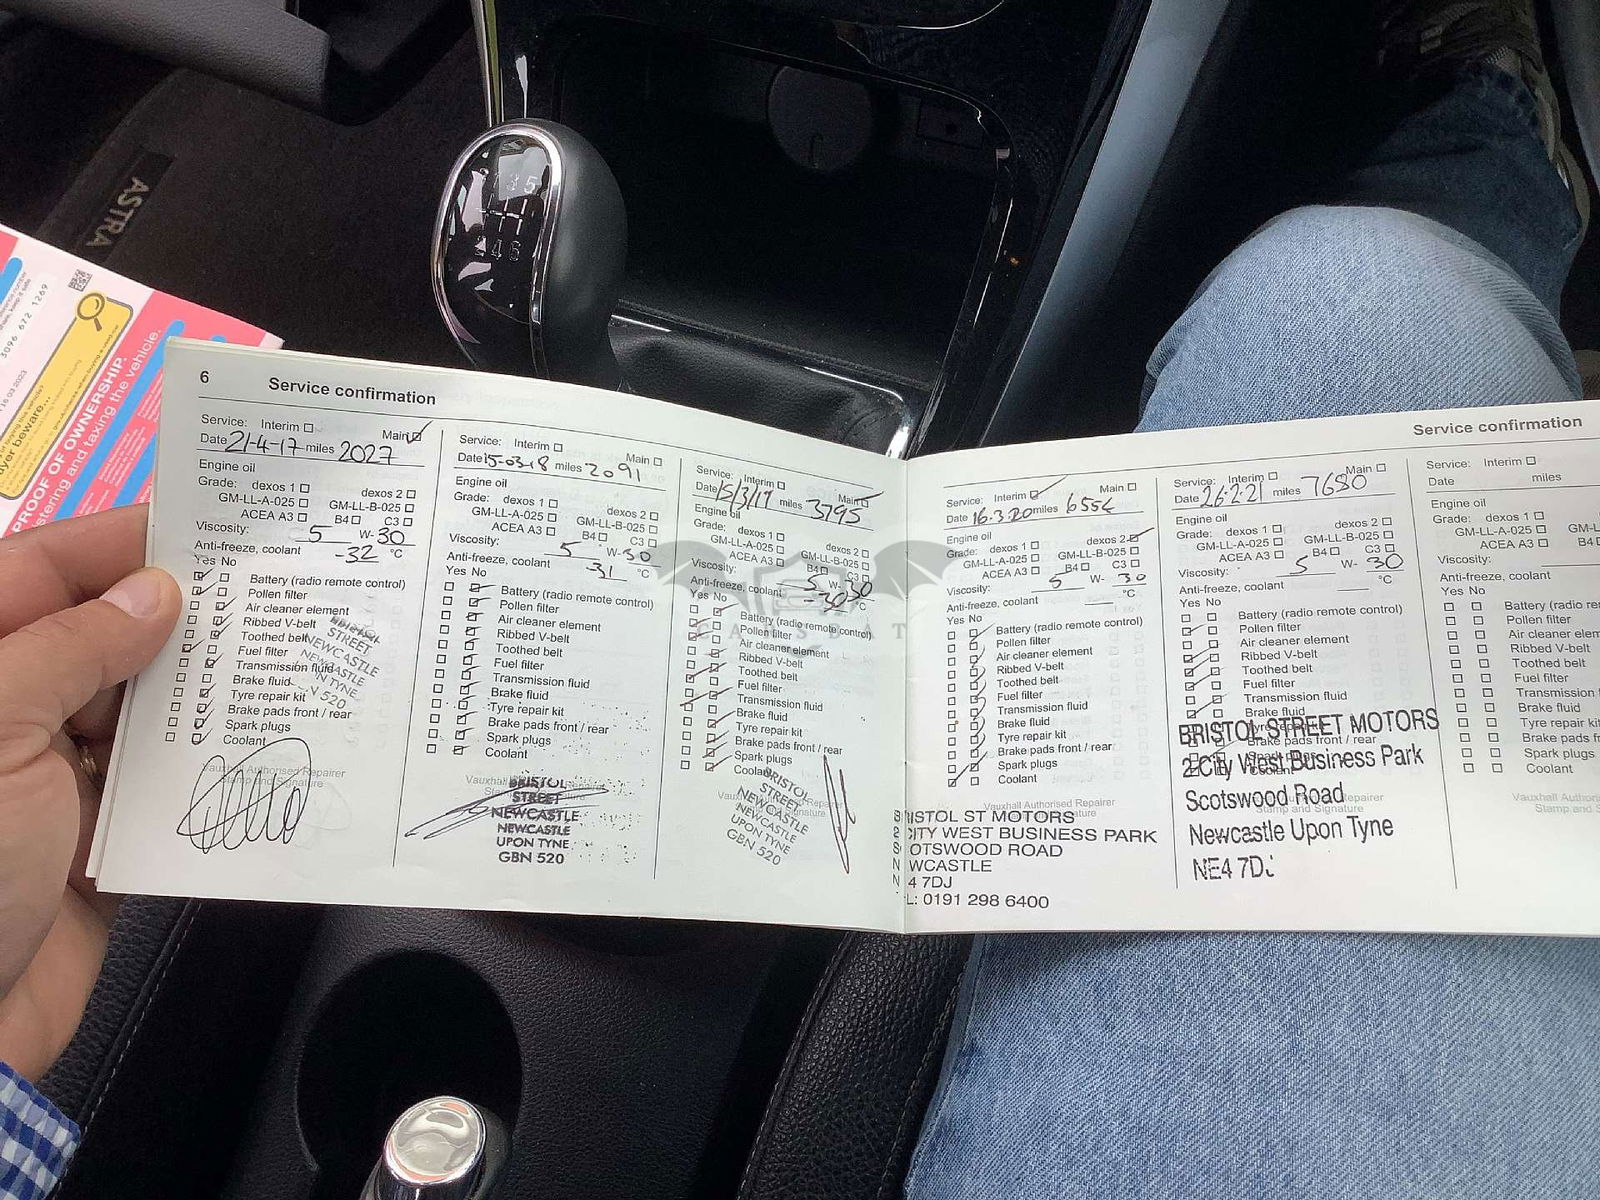 ASTRA
3096 672 1269
16 03 2023
beware...
PROOF OF OWNERSHIP.
stering and taxing the vehicle.
5
4 6
6
Service confirmation
Service: Interim
Main
Date 21-4-17 miles 2027
Engine oil
Grade: dexos 1 dexos 2
GM-LL-A-025 GM-LL-B-025
ACEA A3 B4 C3
Viscosity: 5 W-30
Anti-freeze, coolant -32 °C
Yes No
Battery (radio remote control)
Pollen filter
Air cleaner element
Ribbed V-belt
Toothed belt
Fuel filter
Transmission fluid
Brake fluid
Tyre repair kit
Brake pads front / rear
Spark plugs
Coolant
STREET
NEWCASTLE
NEWCASTLE
N TYNE
N 520
Vauxhall Authorised Repairer
Stamp and Signature
Service: Interim
Main
Date 15-03-18 miles 2091
Engine oil
Grade: dexos 1 dexos 2
GM-LL-A-025 GM-LL-B-025
ACEA A3 B4 C3
Viscosity: 5 W-30
Anti-freeze, coolant -31 °C
Yes No
Battery (radio remote control)
Pollen filter
Air cleaner element
Ribbed V-belt
Toothed belt
Fuel filter
Transmission fluid
Brake fluid
Tyre repair kit
Brake pads front / rear
Spark plugs
Coolant
BRISTOL
STREET
NEWCASTLE
NEWCASTLE
UPON TYNE
GBN 520
Service: Interim
Main
Date miles 3795
Engine oil
Grade: dexos 1 dexos 2
GM-LL-A-025 GM-LL-B-025
ACEA A3 B4 C3
Viscosity: 5 W-30
Anti-freeze, coolant -30 °C
Yes No
Battery (radio remote control)
Pollen filter
Air cleaner element
Ribbed V-belt
Toothed belt
Fuel filter
Transmission fluid
Brake fluid
Tyre repair kit
Brake pads front / rear
Spark plugs
Coolant
BRISTOL
STREET
NEWCASTLE
NEWCASTLE
UPON TYNE
GBN 520
Service confirmation
Service: Interim Main
Date 16.3.20 miles
Engine oil
Grade: dexos 1 dexos 2
GM-LL-A-025 GM-LL-B-025
ACEA A3 B4 C3
Viscosity: 5 W- 30
Anti-freeze, coolant °C
Yes No
Battery (radio remote control)
Pollen filter
Air cleaner element
Ribbed V-belt
Toothed belt
Fuel filter
Transmission fluid
Brake fluid
Tyre repair kit
Brake pads front / rear
Spark plugs
Coolant
Vauxhall Authorised Repairer
BRISTOL ST MOTORS
2 CITY WEST BUSINESS PARK
SCOTSWOOD ROAD
NEWCASTLE
4 7DJ
L: 0191 298 6400
Service: Interim Main
Date 26.2.21 miles 7680
Engine oil
Grade: dexos 1 dexos 2
GM-LL-A-025 GM-LL-B-025
ACEA A3 B4 C3
Viscosity: 5 W- 30
Anti-freeze, coolant °C
Yes No
Battery (radio remote control)
Pollen filter
Air cleaner element
Ribbed V-belt
Toothed belt
Fuel filter
Transmission fluid
Brake fluid
Brake pads front / rear
BRISTOL STREET MOTORS
2 City West Business Park
Scotswood Road
Newcastle Upon Tyne
NE4 7DJ
Service: Interim
Date miles
Engine oil
Grade: dexos 1
GM-LL-A-025 GM-L
ACEA A3 B4
Viscosity:
Anti-freeze, coolant
Yes No
Battery (radio re
Pollen filter
Air cleaner elem
Ribbed V-belt
Toothed belt
Fuel filter
Transmission flu
Brake fluid
Tyre repair kit
Brake pads fro
Spark plugs
Coolant
Vauxhall Auth
Stamp and S
CARSBAT